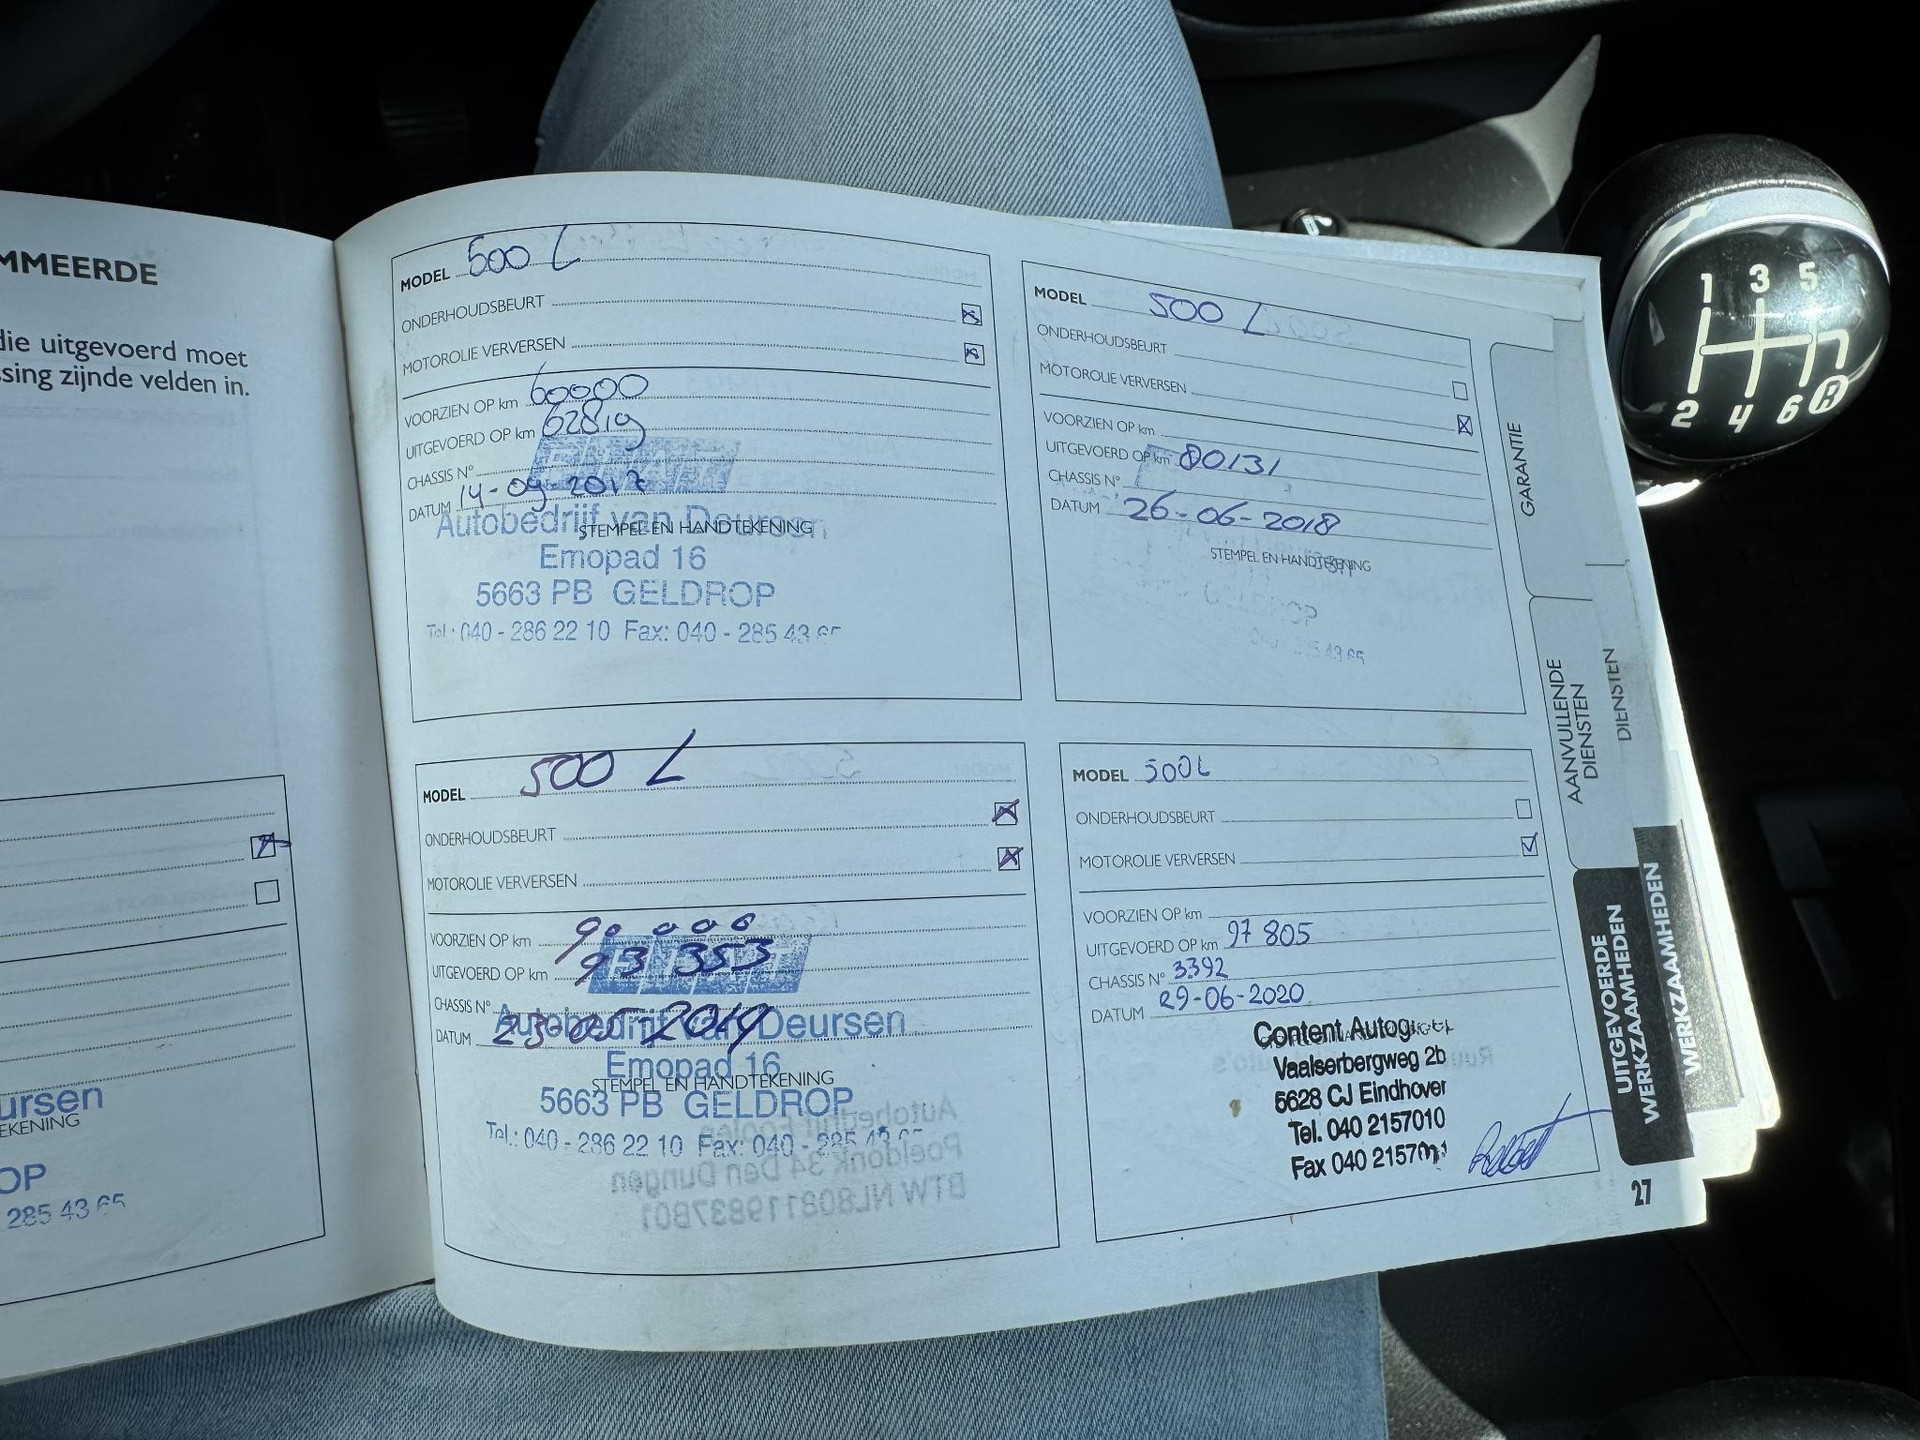 MMEERDE
die uitgevoerd moet
ssing zijnde velden in.
ursen
EKENING
OP
285 43 65
MODEL 500 L
ONDERHOUDSBEURT
MOTOROLIE VERVERSEN
VOORZIEN OP km 60000
UITGEVOERD OP km 62819
CHASSIS N°
DATUM 14-09-2017
Autobedrijf van Deursen
STEMPEL EN HANDTEKENING
Emopad 16
5663 PB GELDROP
Tel.: 040 - 286 22 10 Fax: 040 - 285 43 65
MODEL 500 L
ONDERHOUDSBEURT
MOTOROLIE VERVERSEN
VOORZIEN OP km
UITGEVOERD OP km 80131
CHASSIS N°
DATUM 26-06-2018
STEMPEL EN HANDTEKENING
MODEL 500 L
ONDERHOUDSBEURT
MOTOROLIE VERVERSEN
VOORZIEN OP km 90.000
UITGEVOERD OP km 93 353
CHASSIS N°
DATUM 23-05-2019
Autobedrijf van Deursen
Emopad 16
STEMPEL EN HANDTEKENING
5663 PB GELDROP
Tel.: 040 - 286 22 10 Fax: 040 - 285 43 65
MODEL 500L
ONDERHOUDSBEURT
MOTOROLIE VERVERSEN
VOORZIEN OP km
UITGEVOERD OP km 97 805
CHASSIS N° 3392
DATUM 29-06-2020
Content
Vaalserbergweg 2b
5628 CJ Eindhoven
Tel. 040 2157010
Fax 040
GARANTIE
AANVULLENDE
DIENSTEN
DIENSTEN
UITGEVOERDE
WERKZAAMHEDEN
WERKZAAMHEDEN
27
1 3 5
2 4 6 R